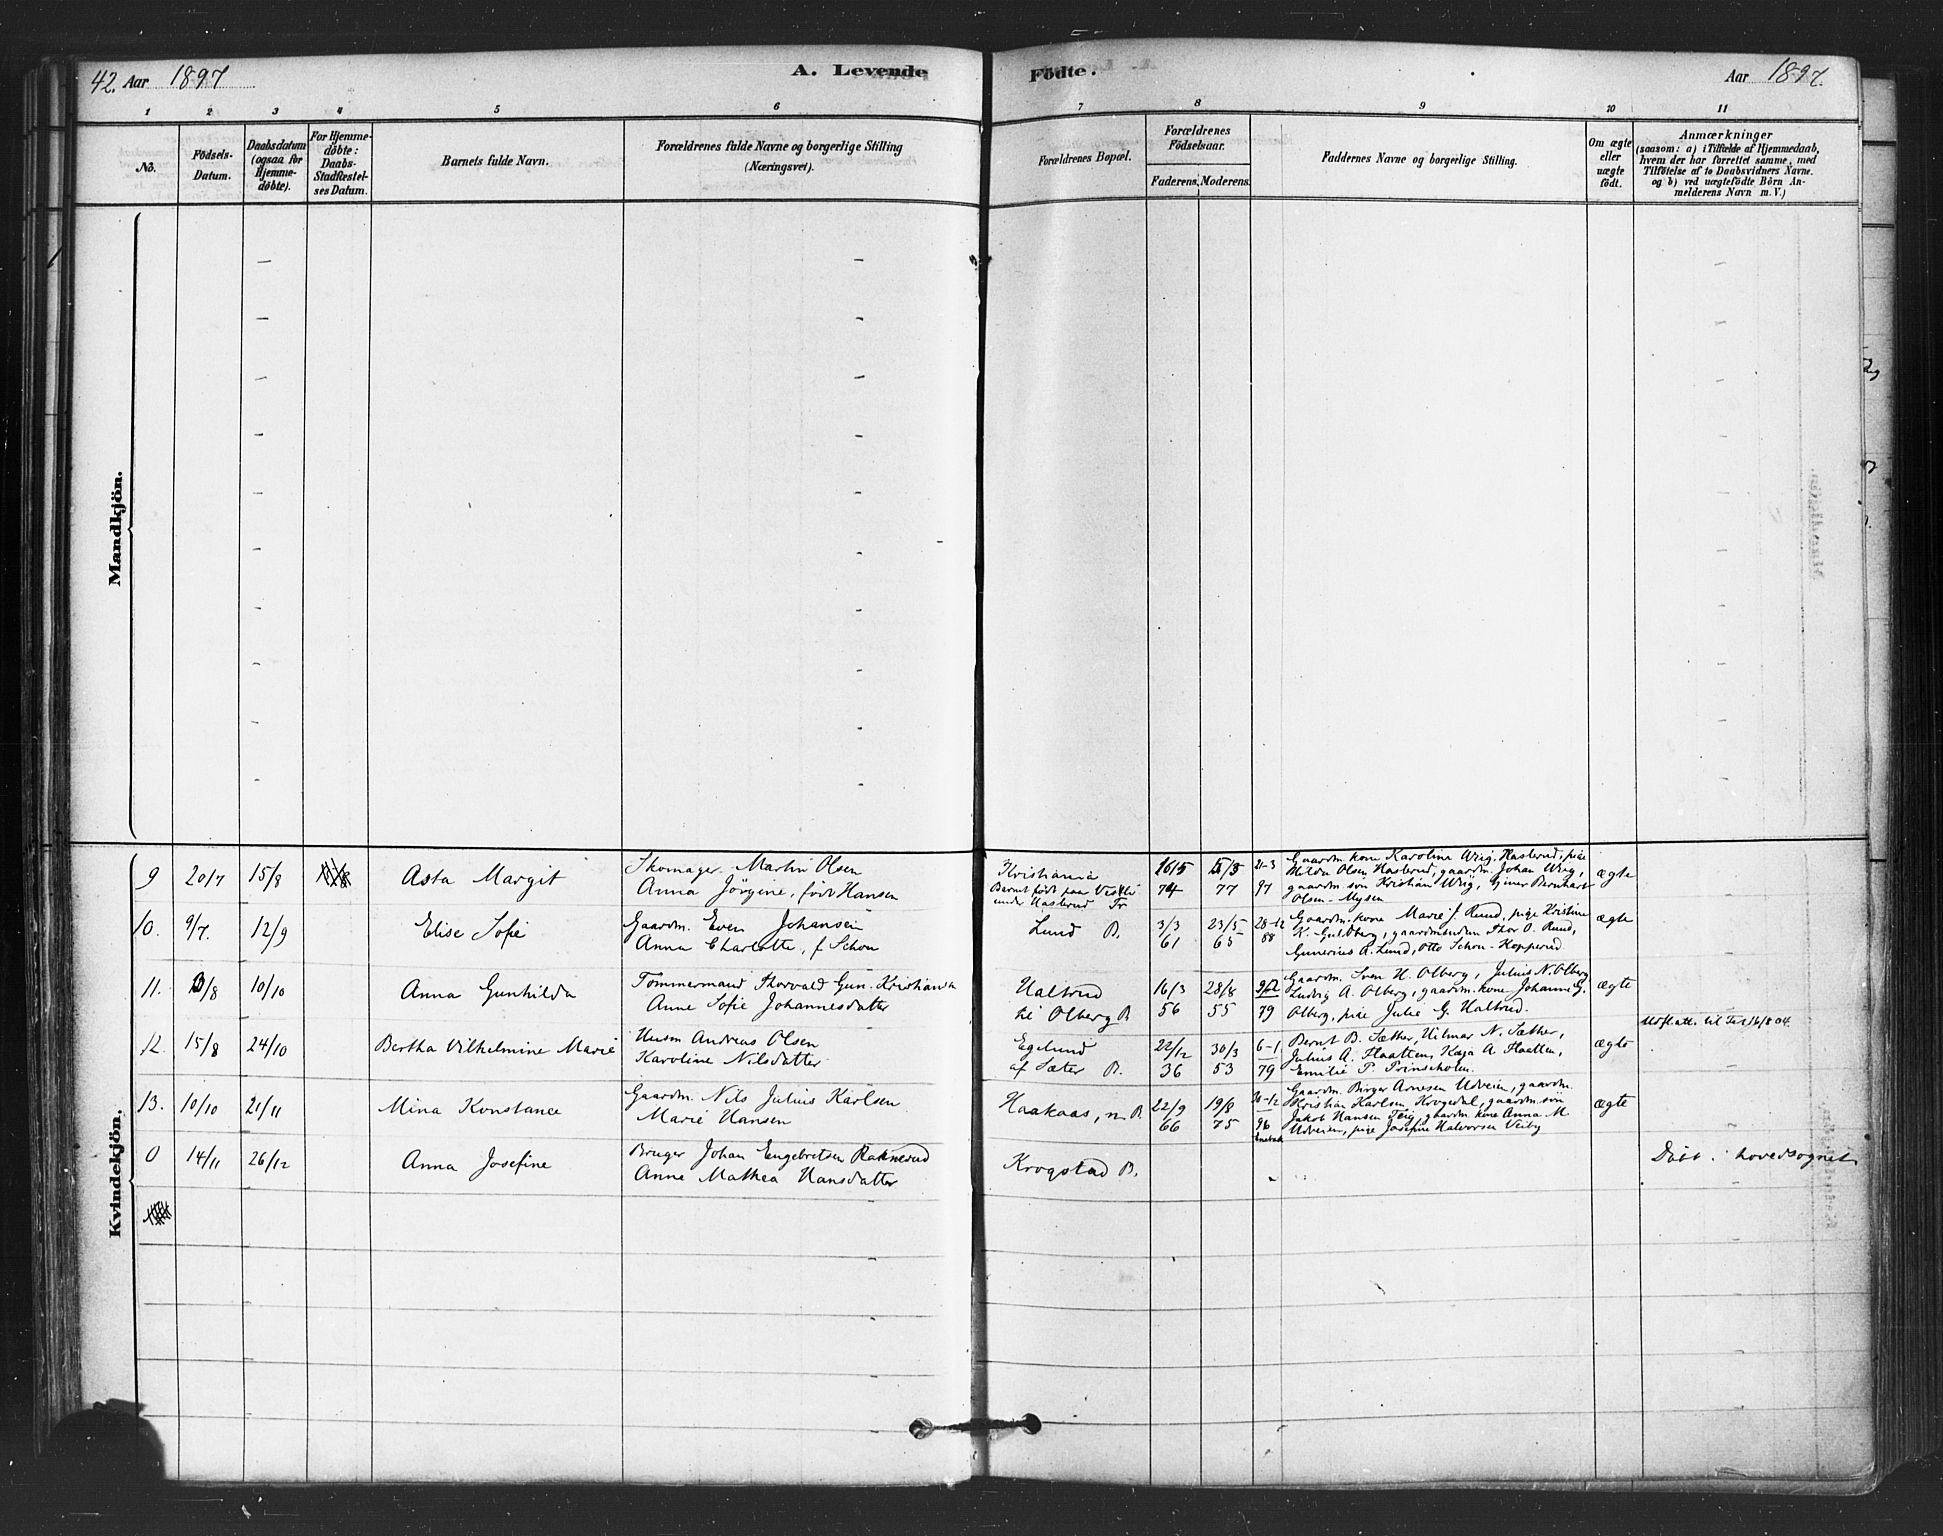 42. Aar 1897
A. Levende
Födte.
Aar 1897.
1 2 3 4 5 6 7 8 9 10 11
No.
Födsels-
Datum.
Daabsdatum
(ogsaa for
Hjemme-
döbte).
For Hjemme-
döbte:
Daabs-
Stadfæstel-
ses Datum.
Barnets fulde Navn.
Forældrenes fulde Navne og borgerlige Stilling
(Næringsvei).
Forældrenes Bopæl.
Forældrenes
Födselsaar.
Faderens. Moderens.
Faddernes Navne og borgerlige Stilling.
Om ægte
eller
uægte
födt.
Anmærkninger
(saasom: a) i Tilfælde af Hjemmedaab,
hvem der har forrettet samme, med
Tilföielse af to Daabsvidners Navne.
og b) ved uægtefödte Börn An-
melderens Navn m. V.)
Mandkjön.
Kvindekjön.
9 20/7 15/8 Asta Margit
Skomager Martin Olsen
Anna Jörgine, født Hansen
Kristiania
Barnet født paa
under Hasterud Tr
16/5 74
77
21-3 97
Gaardm. kone Karolina Wiig, Hasterud, pige
Milda Olsen Hasterud, gaardm. Johan Wiig,
gaardm. søn Kristian Wiig, Einer Bernhart
Olsen - Mysen
ægte
10. 9/7. 12/9 Elise Sofie
Gaardm. Even Johansen
Anna Charlotte, f Schou
Lund B.
3/3 61
23/5 65
28-12 88
Gaardm. kone Marie J. Ruud, pige Kristine
K. Guldberg, gaardmanden Thor O. Ruud,
Gunerius A. Lund, Otto Schou - Kopperud
ægte
11. 3/8 10/10 Anna Gunhilda
Tømmermand Thorvald Gun. Kristiansen
Anne Sofie Johannesdatter
Haltrud
til Olberg B
16/3 56
28/8 55
79
Gaardm. Sven H. Olberg, Julius N. Olberg
Ludvig A. Olberg, gaardm. kone Johanne G.
Olberg, pige Julie G. Haltrud.
ægte
12. 15/8 24/10 Bertha Vilhelmine Marie
Husm Andreas Olsen
Karoline Nilsdatter
Egelund
af Sæter B.
22/12 36
30/3 53
6-1 79
Bernt B. Sæther, Hilmar N. Sæther,
Julius A. Flaatten, Kaja A. Flaatten,
Emilie P. Prinsholen.
ægte
til 16/8 04.
13. 10/10 21/11 Mina Konstance
Gaardm. Nils Julius Karlsen
Marie Hansen
Haakaas, n. B
22/9 66
19/8 75
96
Gaardm. Birger Arnesen Udveien, gaardm.
Kristian Karlsen Krogedal, gaardm. søn
Jakob Hansen Teig, gaardm. kone Anna M
Udveien, pige Josefine Halvorsen Veiby
ægte
0 14/11 26/12 Anna Josefine
Bruger Johan Engebretsen Raknerud
Anne Mathea Hansdatter
Krogstad B.
Døbt i hovedsognet